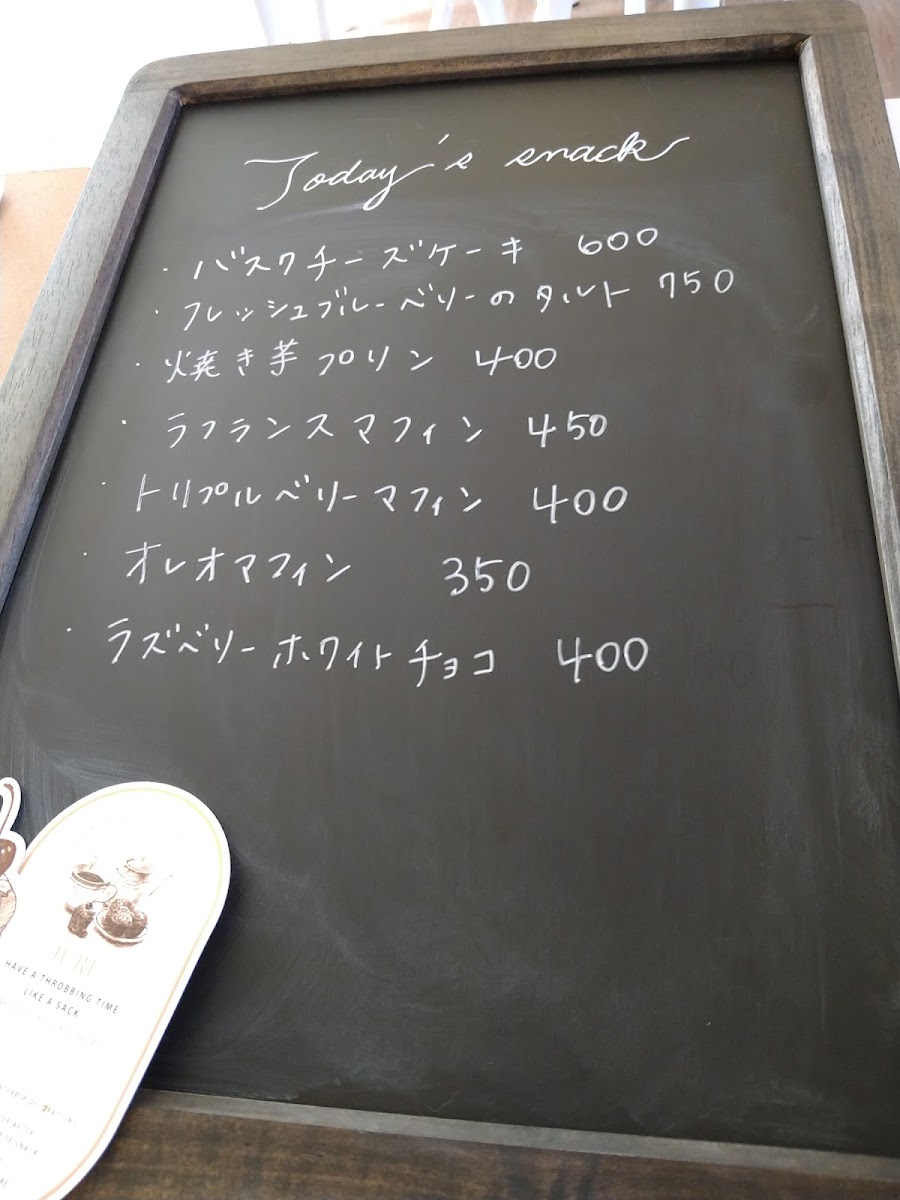 Today's snack
・バスクチーズケーキ 600
・フレッシュブルーベリーのタルト 750
・焼き芋プリン 400
・ラフランスマフィン 450
・トリプルベリーマフィン 400
・オレオマフィン 350
・ラズベリーホワイトチョコ 400
HAVE A THROBBING TIME
LIKE A SACK